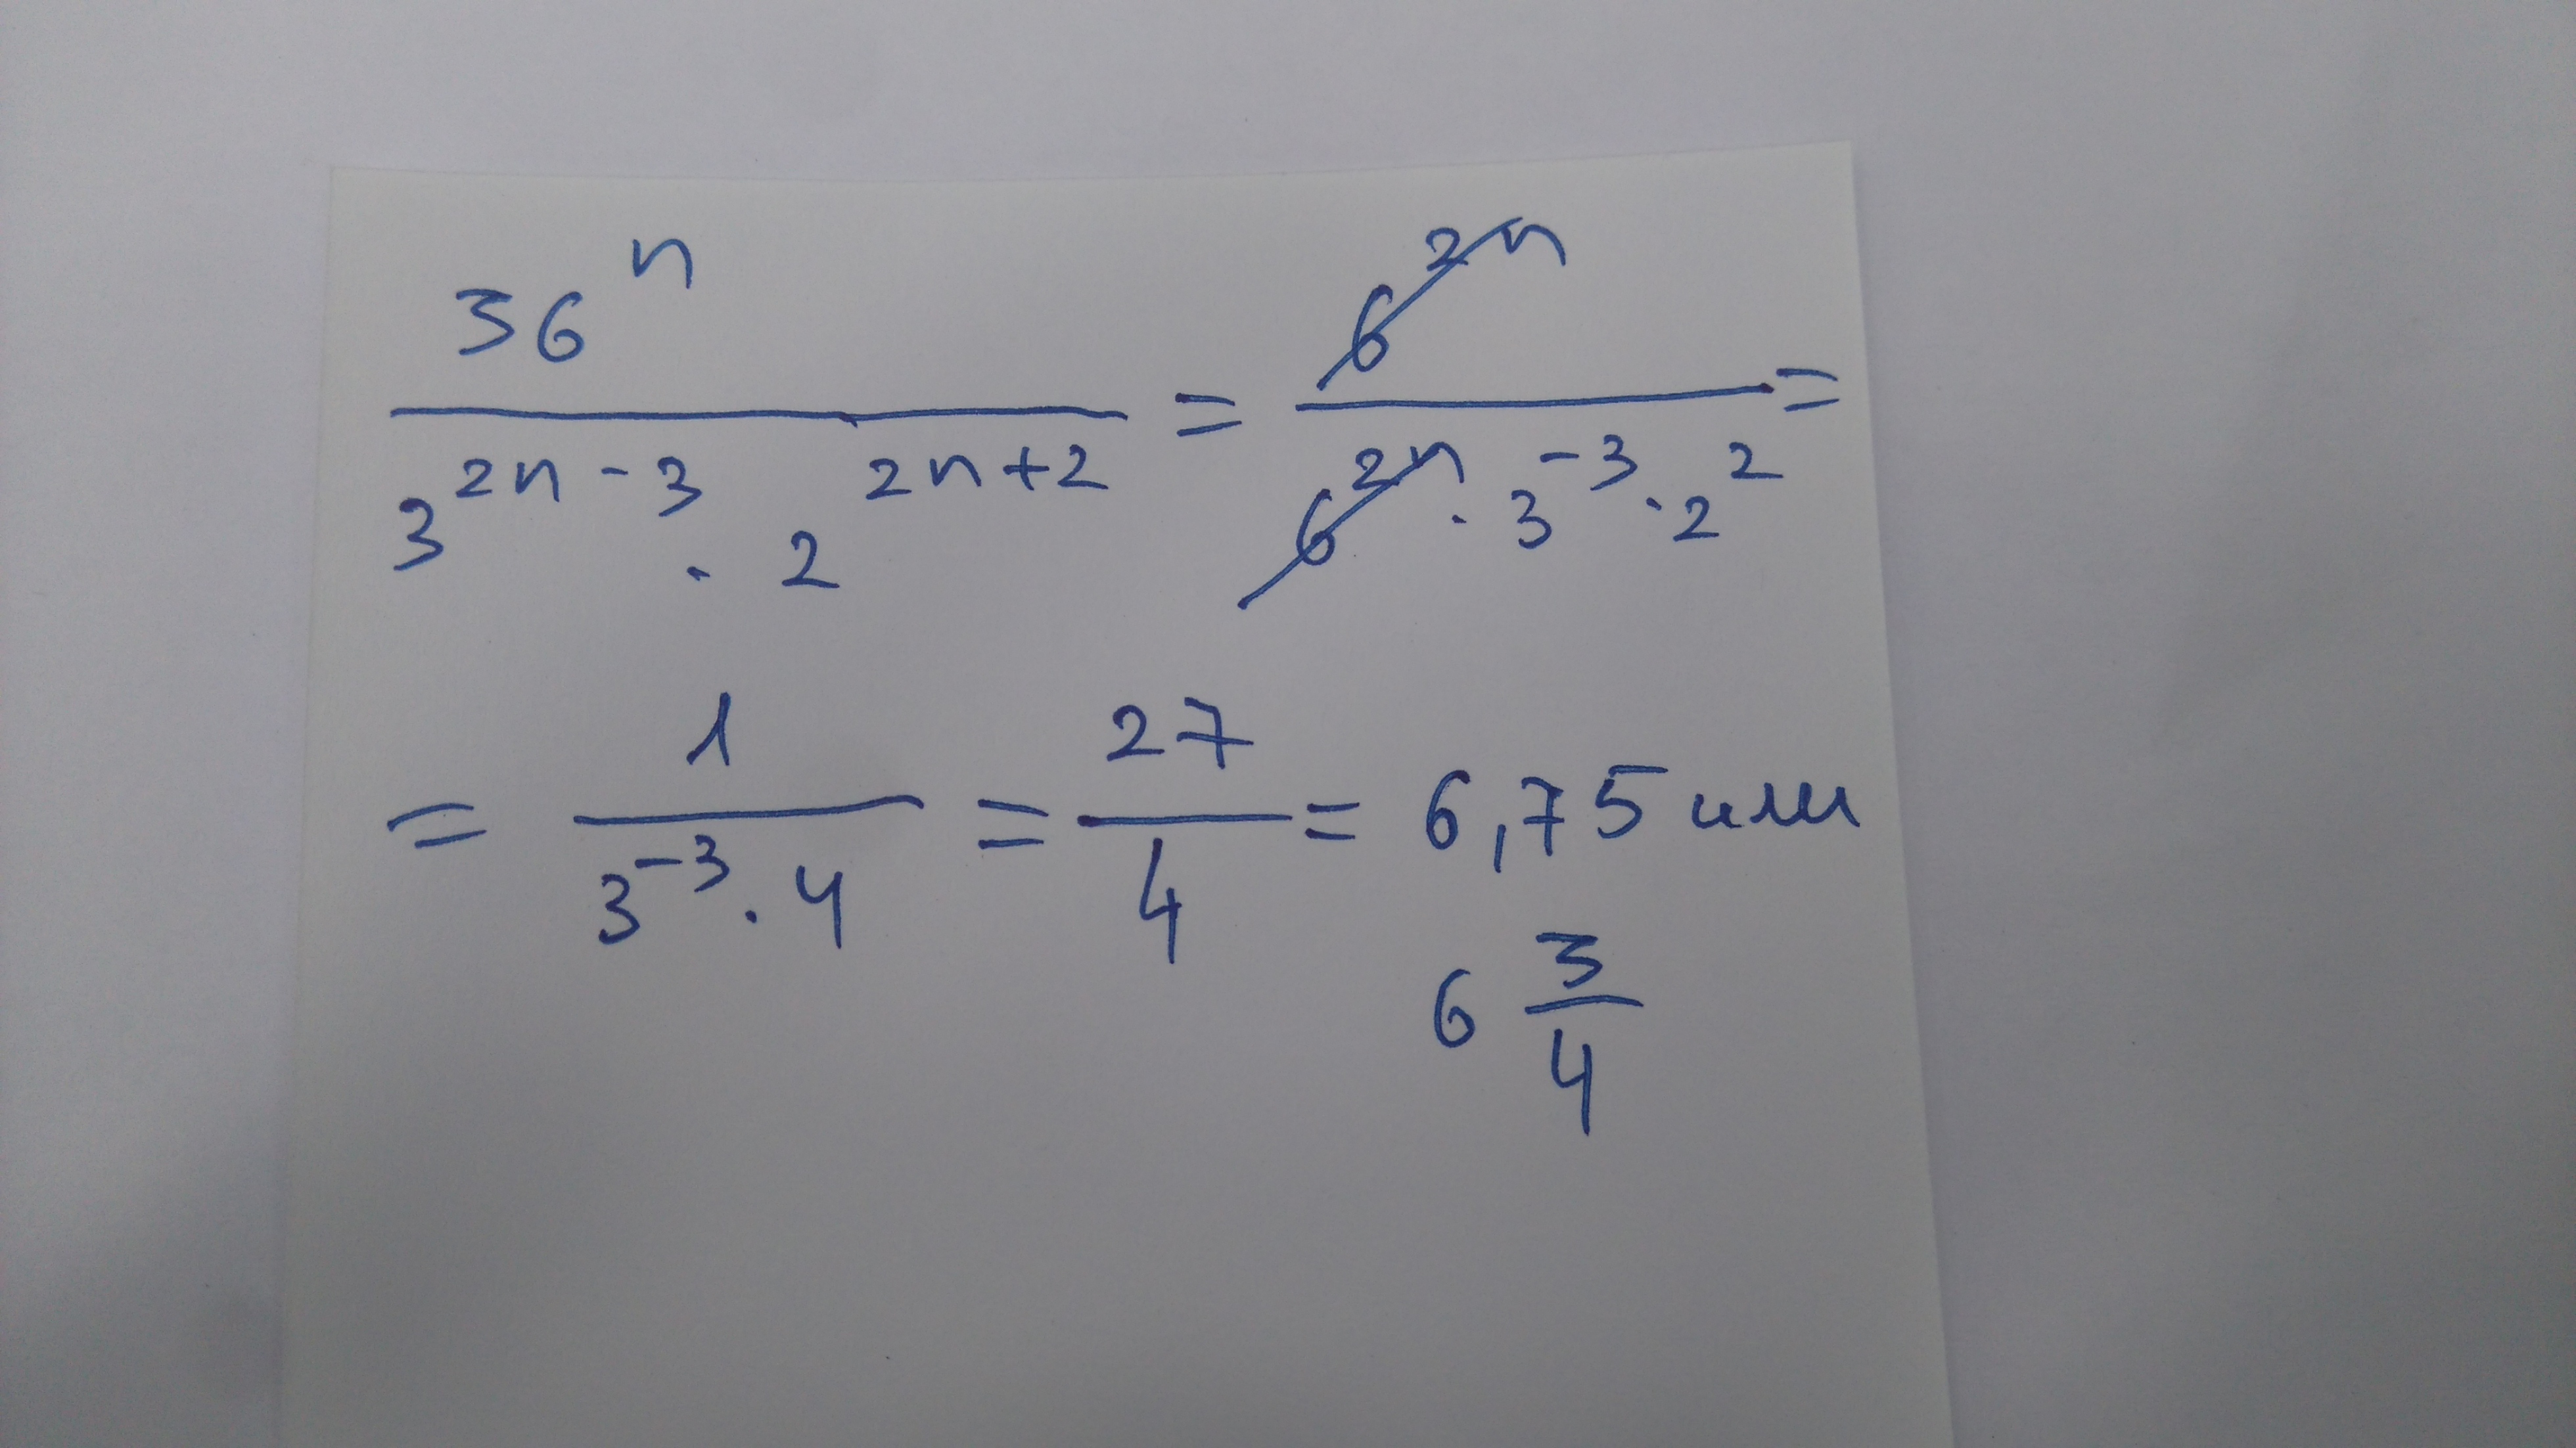 36^n / (3^(2n-3) · 2^(2n+2)) = 6^(2n) / (6^(2n) · 3^(-3) · 2^2) =
= 1 / (3^(-3) · 4) = 27 / 4 = 6,75 или
6 3/4